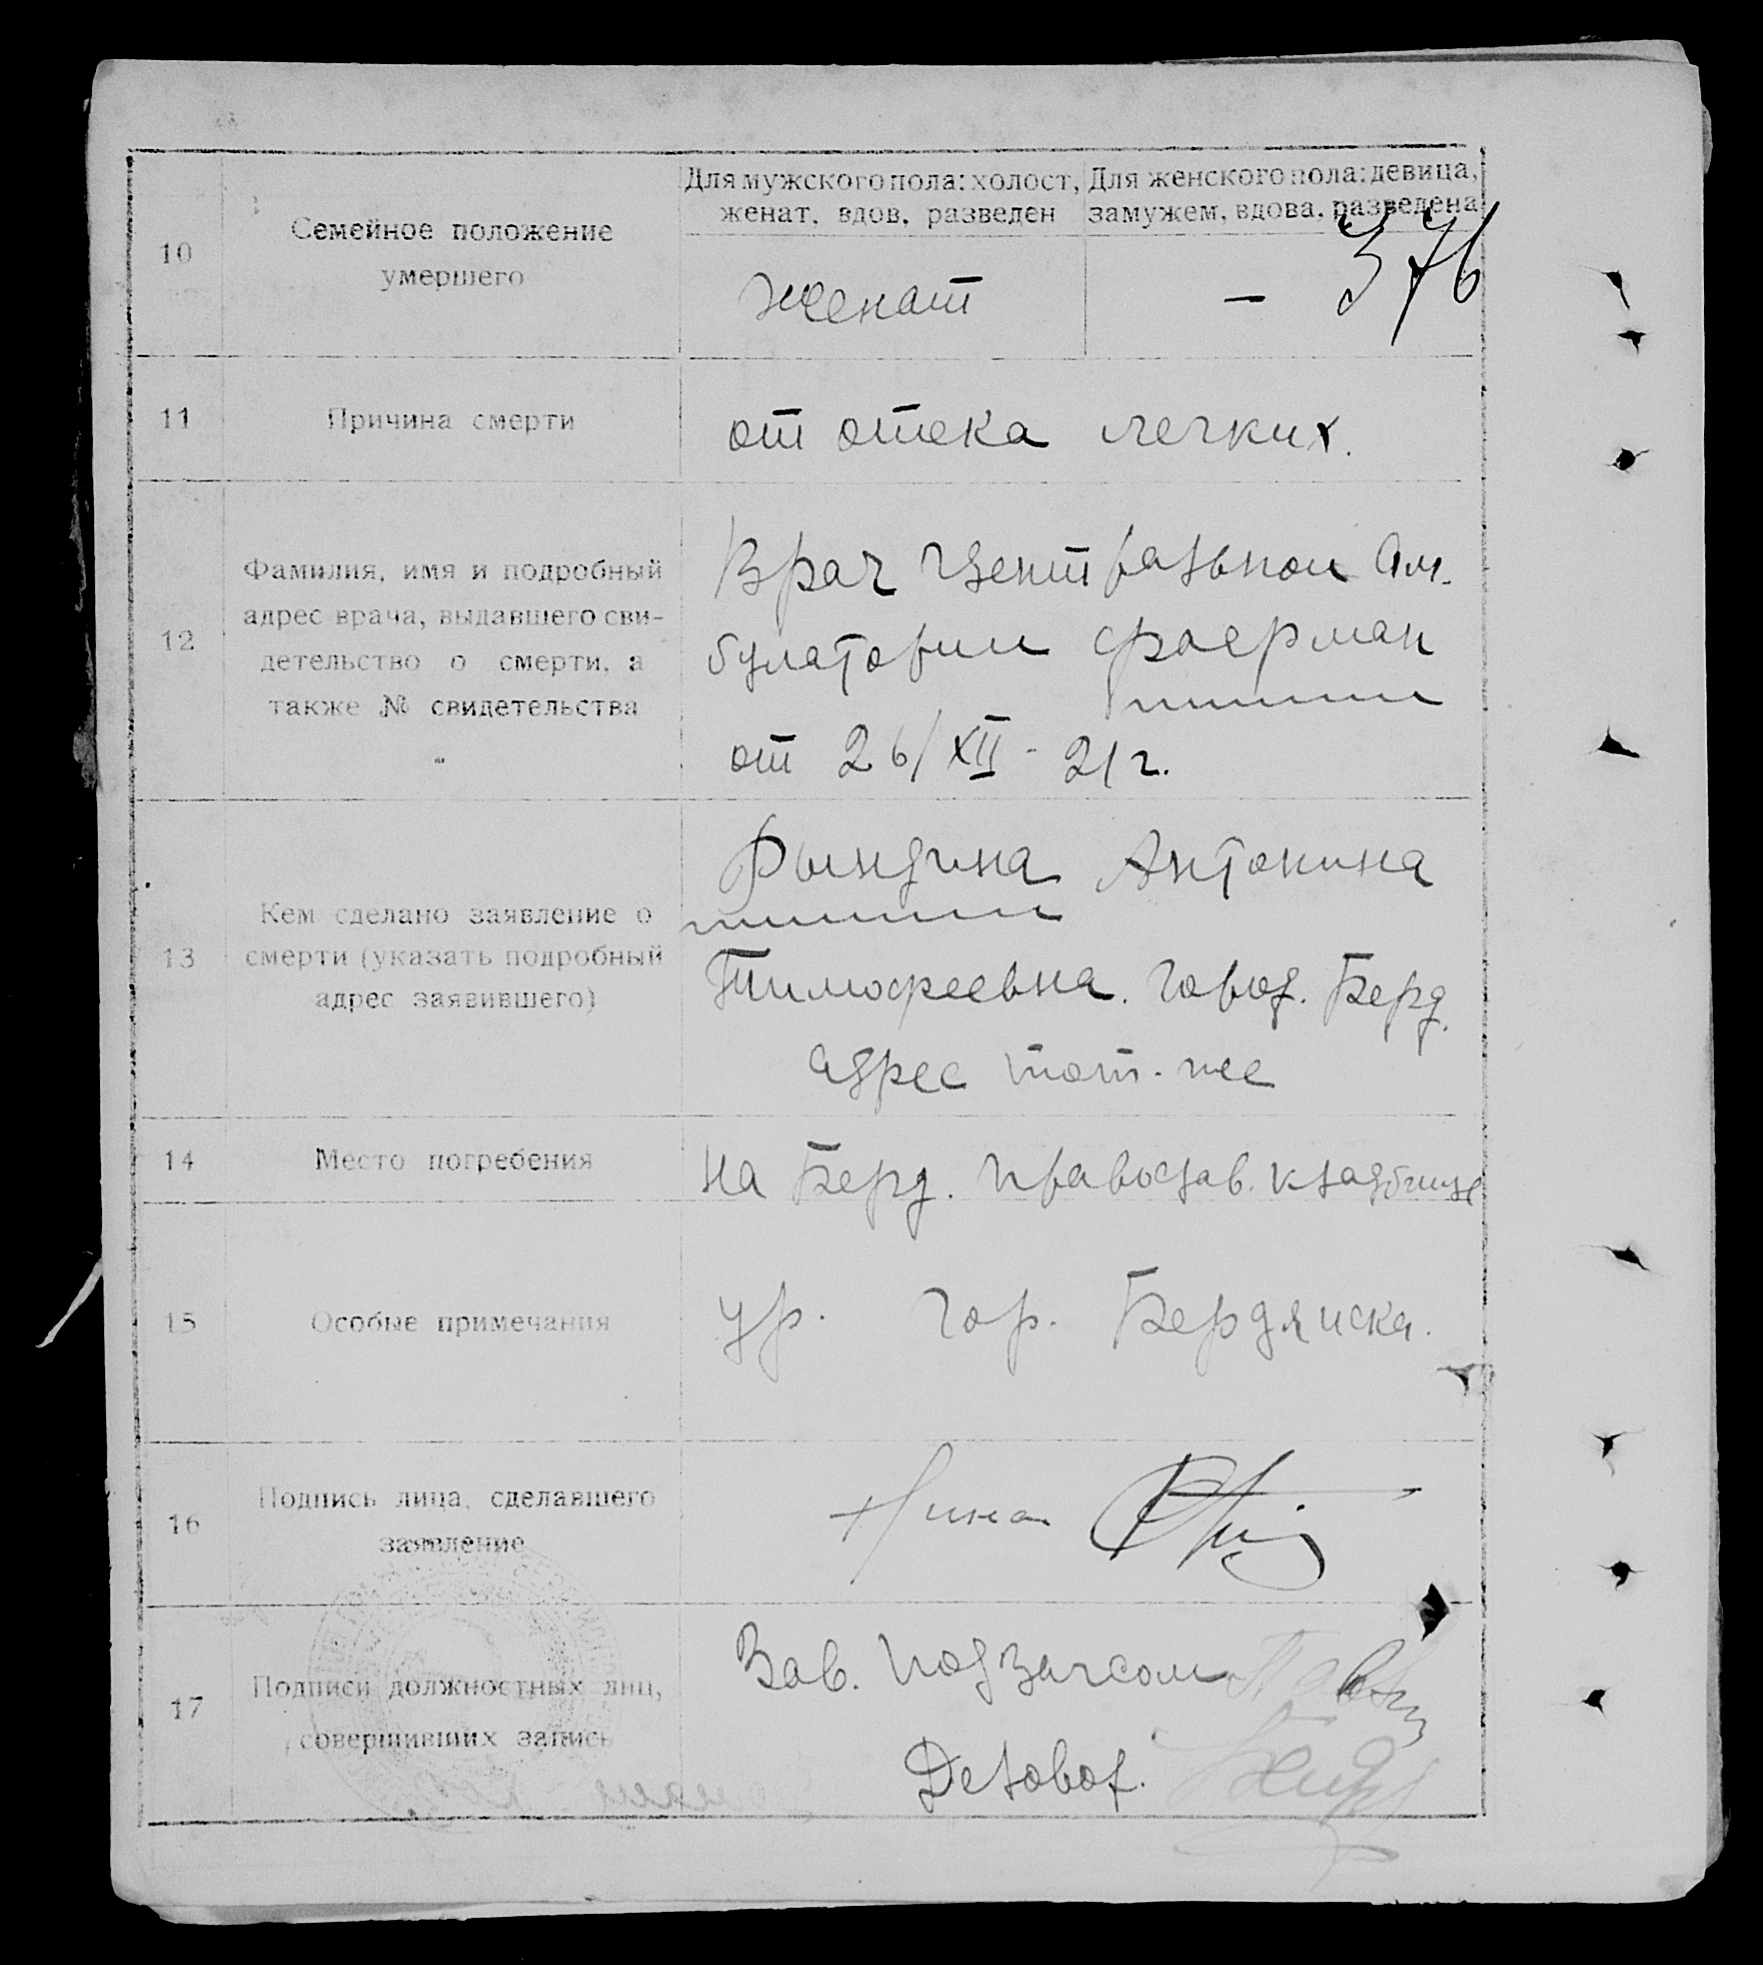 10
Семейное положение
умершего
Для мужского пола: холост,
женат, вдов, разведен
Для женского пола: девица,
замужем, вдова, разведена
376
женат
—
11
Причина смерти
от отека легких.
12
Фамилия, имя и подробный
адрес врача, выдавшего сви-
детельство о смерти, а
также № свидетельства
Врач Центральной Ам-
булатории Фаерман
от 26/XII - 21 г.
13
Кем сделано заявление о
смерти (указать подробный
адрес заявившего)
Рындина Антонина
Тимофеевна. Город. Берд.
адрес тот-же
14
Место погребения
на Берд. православ. кладбище
15
Особые примечания
ур. гор. Бердянска.
16
Подпись лица, сделавшего
заявление
Нина
17
Подписи должностных лиц,
совершивших запись
Зав. Подзагсом
Деловод.